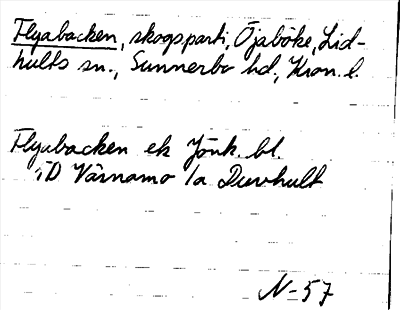 Flyabacken, skogsparti, Öjaböke, Lid-
hults sn., Sunnerbo hd., Kron. l.
Flyabacken ek Jönk. bl.
1D Värnamo 1a Duvhult
N-57